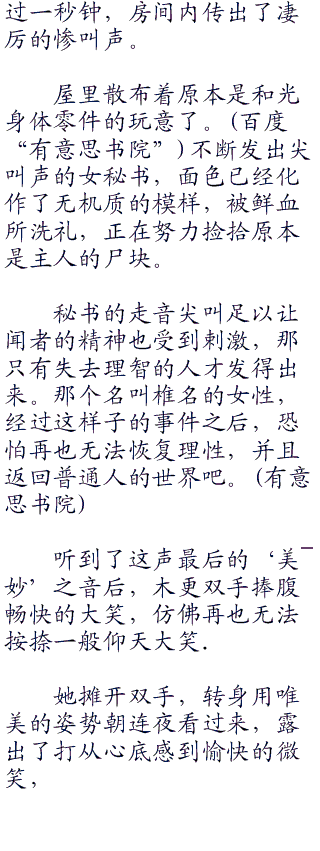 过一秒钟，房间内传出了凄
厉的惨叫声。
屋里散布着原本是和光
身体零件的玩意了。(百度
“有意思书院”)不断发出尖
叫声的女秘书，面色已经化
作了无机质的模样，被鲜血
所洗礼，正在努力捡拾原本
是主人的尸块。
秘书的走音尖叫足以让
闻者的精神也受到刺激，那
只有失去理智的人才发得出
来。那个名叫椎名的女性，
经过这样子的事件之后，恐
怕再也无法恢复理性，并且
返回普通人的世界吧。(有意
思书院)
听到了这声最后的‘美
妙’之音后，木更双手捧腹
畅快的大笑，仿佛再也无法
按捺一般仰天大笑．
她摊开双手，转身用唯
美的姿势朝连夜看过来，露
出了打从心底感到愉快的微
笑，